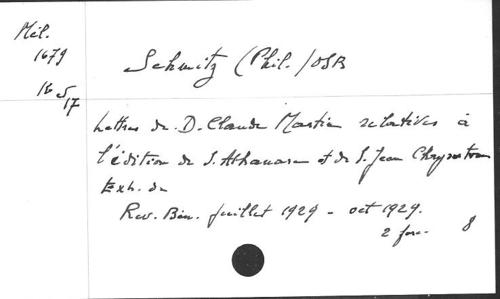 Mél.
1679
16 et 17
Schmitz (Phil.) OSB
Lettres de D. Claude Martin relatives à
l'édition de S. Athanase et de S. Jean Chrysostome
Extr. de
Rev. Bén. juillet 1929 - oct 1929.
2 fasc. 8